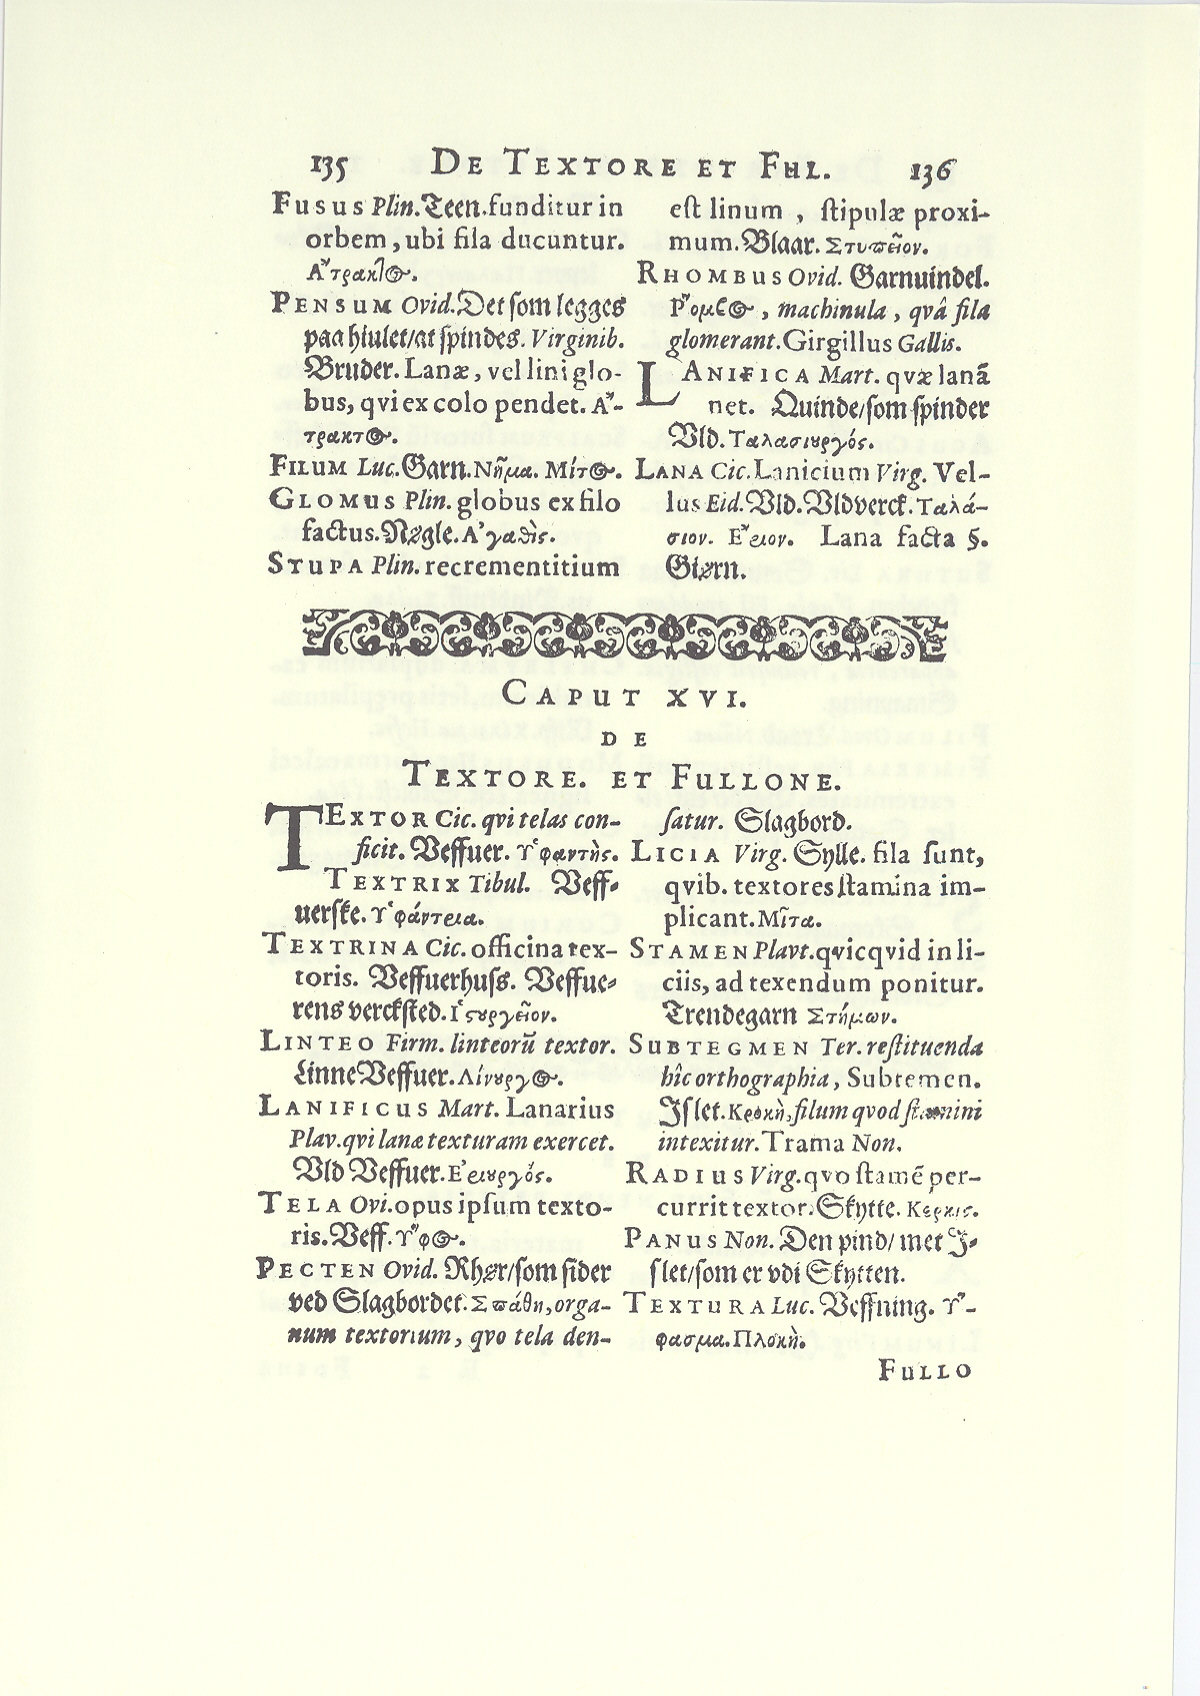 135 DE TEXTORE ET FUL. 136
FUSUS Plin. Teen. funditur in
orbem, ubi fila ducuntur.
Ἄτρακτος.
PENSUM Ovid. Det som legges
paa hiulet/at spindes. Virginib.
Bruder. Lanæ, vel lini glo-
bus, qvi ex colo pendet. Ἄ-
τρακτος.
FILUM Luc. Garn. Νῆμα. Μίτος.
GLOMUS Plin. globus ex filo
factus. Nøgle. Ἀγαθὶς.
STUPA Plin. recrementitium
est linum, stipulæ proxi-
mum. Blaar. Στυπεῖον.
RHOMBUS Ovid. Garnuindel.
Ῥομβος, machinula, qvâ fila
glomerant. Girgillus Gallis.
LANIFICA Mart. qvæ lanā
net. Quinde/som spinder
Vld. Ταλασιουργός.
LANA Cic. Lanicium Virg. Vel-
lus Eid. Vld. Vldverck. Ταλά-
σιον. Ἔριον. Lana facta §.
Giørn.
CAPUT XVI.
DE
TEXTORE. ET FULLONE.
TEXTOR Cic. qvi telas con-
ficit. Veffuer. Ὑφαντὴς.
TEXTRIX Tibul. Veff-
uerske. Ὑφάντεια.
TEXTRINA Cic. officina tex-
toris. Veffuerhuss. Veffue-
rens vercksted. Ἱστουργεῖον.
LINTEO Firm. linteorū textor.
Linne Veffuer. Λίνουργος.
LANIFICUS Mart. Lanarius
Plav. qvi lanæ texturam exercet.
Vld Veffuer. Ἐριουργός.
TELA Ovi. opus ipsum texto-
ris. Veff. Ὕφος.
PECTEN Ovid. Rhør/som sider
ved Slagbordet. Σπάθη, orga-
num textorium, qvo tela den-
satur. Slagbord.
LICIA Virg. Sylle. fila sunt,
qvib. textores stamina im-
plicant. Μῖτα.
STAMEN Plavt. qvicqvid in li-
ciis, ad texendum ponitur.
Trendegarn Στήμων.
SUBTEGMEN Ter. restituenda
hîc orthographia, Subtemen.
Islet. Κρόκη, filum qvod stamini
intexitur. Trama Non.
RADIUS Virg. qvo stamē per-
currit textor. Skytte. Κερκις.
PANUS Non. Den pind/ met I-
slet/som er vdi Skytten.
TEXTURA Luc. Veffning. Ὕ-
φασμα. Πλοκὴ.
FULLO